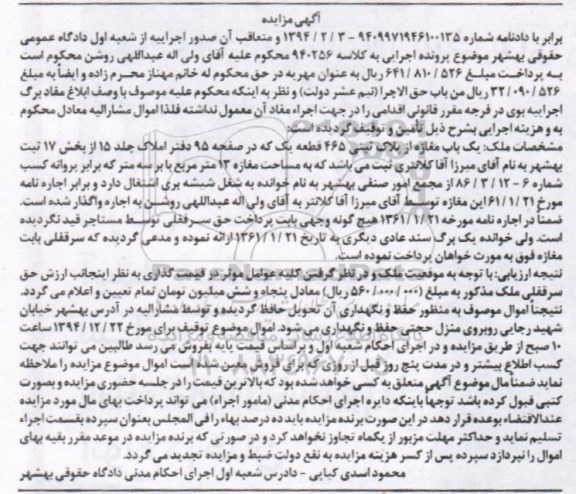 آگهی مزایده
برابر با دادنامه شماره 9409971946100135 - 3 / 2 / 1394 و متعاقب آن صدور اجراییه از شعبه اول دادگاه عمومی
حقوقی بهشهر موضوع پرونده اجرایی به کلاسه 940256 محکوم علیه آقای ولی اله عبداللهی روشن محکوم است
به پرداخت مبلغ 526 / 810 / 641 ریال به عنوان مهریه در حق محکوم له خانم مهناز محرم زاده و ایضاً به مبلغ
526 / 090 / 32 ریال من باب حق الاجرا (نیم عشر دولت) و نظر به اینکه محکوم علیه موصوف با وصف ابلاغ مفاد برگ
اجراییه بوی در فرجه مقرر قانونی اقدامی را در جهت اجراء مفاد آن معمول نداشته فلذا اموال مشارالیه معادل محکوم
به و هزینه اجرایی بشرح ذیل تأمین و توقیف گردیده است:
مشخصات ملک: یک باب مغازه از پلاک ثبتی 465 قطعه یک که در صفحه 95 دفتر املاک جلد 15 از بخش 17 ثبت
بهشهر به نام آقای میرزا آقا کلانتری ثبت می باشد که به مساحت مغازه 13 متر مربع با بر سه متر که برابر پروانه کسب
شماره 6 - 12 / 3 / 86 از مجمع امور صنفی بهشهر به نام خوانده به شغل شیشه بری اشتغال دارد و برابر اجاره نامه
مورخ 21 / 1 / 61 این مغازه توسط آقای میرزا آقا کلانتر به آقای ولی اله عبداللهی روشن به اجاره واگذار شده است.
ضمناً در اجاره نامه مورخه 21 / 1 / 1361 هیچ گونه وجهی بابت پرداخت حق سرقفلی توسط مستاجر قید نگردیده
است. ولی خوانده یک برگ سند عادی دیگری به تاریخ 21 / 1 / 1361 ارائه نموده و مدعی گردیده که سرقفلی بابت
مغازه فوق به مورث خواهان پرداخت نموده است.
نتیجه ارزیابی: با توجه به موقعیت ملک و در نظر گرفتن کلیه عوامل موثر در قیمت گذاری به نظر اینجانب ارزش حق
سرقفلی ملک مذکور به مبلغ (000 / 000 / 560 ریال) معادل پنجاه و شش میلیون تومان تمام تعیین و اعلام می گردد.
نتیجتاً اموال موصوف به منظور حفظ و نگهداری آن تحویل حافظ گردیده و توسط مشارالیه در آدرس بهشهر خیابان
شهید رجایی روبروی منزل حجتی حفظ و نگهداری می شود. اموال موضوع توقیف برای مورخ 22 / 12 / 1394 ساعت
10 صبح از طریق مزایده و در اجرای احکام شعبه اول و بر اساس قیمت پایه بفروش می رسد طالبین می توانند جهت
کسب اطلاع بیشتر و در مدت پنج روز قبل از روزی که برای فروش معین شده است اموال موضوع مزایده را ملاحظه
نماید ضمناً مال موضوع آگهی متعلق به کسی خواهد شده بود که بالاترین قیمت را در جلسه حضوری مزایده و بصورت
کتبی قبول کرده باشد توجهاً باینکه دایره اجرای احکام مدنی (مامور اجراء) می تواند پرداخت بهای مال مورد مزایده
عندالاقتضاء بوعده قرار دهد در این صورت برنده مزایده باید ده درصد بهاء را فی المجلس بعنوان سپرده بقسمت اجراء
تسلیم نماید و حداکثر مهلت مزبور از یکماه تجاوز نخواهد کرد و در صورتی که برنده مزایده در موعد مقرر بقیه بهای
اموال را نپردازد سپرده پس از کسر هزینه مزایده به نفع دولت ضبط و مزایده تجدید می گردد.
محمود اسدی کیاپی - دادرس شعبه اول اجرای احکام مدنی دادگاه حقوقی بهشهر